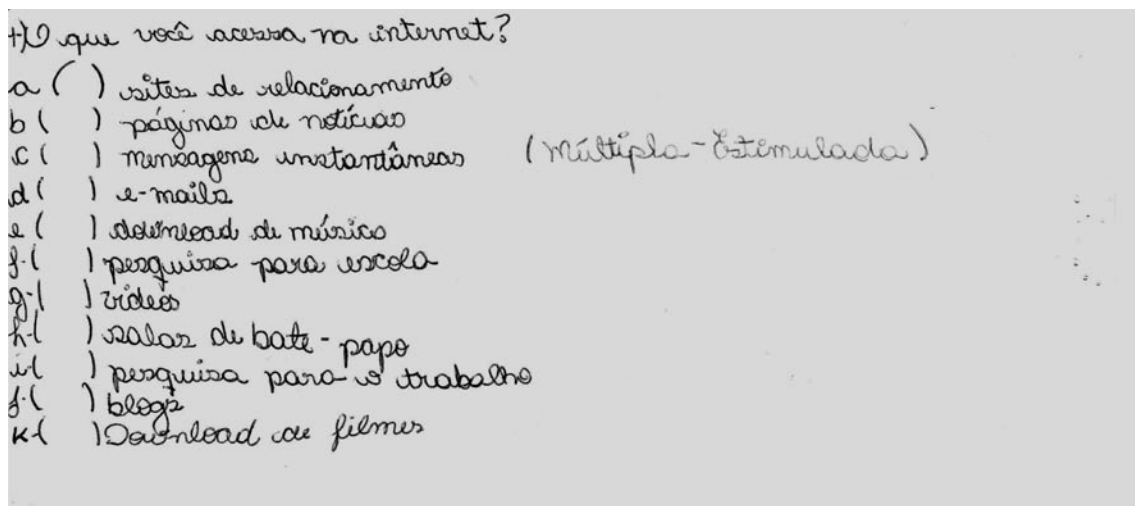 O que você acessa na internet?
a ( ) sites de relacionamento
b ( ) páginas de notícias
c ( ) mensagens instantâneas (Múltipla-Estimulada)
d ( ) e-mails
e ( ) download de música
f-( ) pesquisa para escola
g-( ) vídeos
h-( ) salas de bate-papo
i-( ) pesquisa para o trabalho
j-( ) blogs
k-( ) Download de filmes